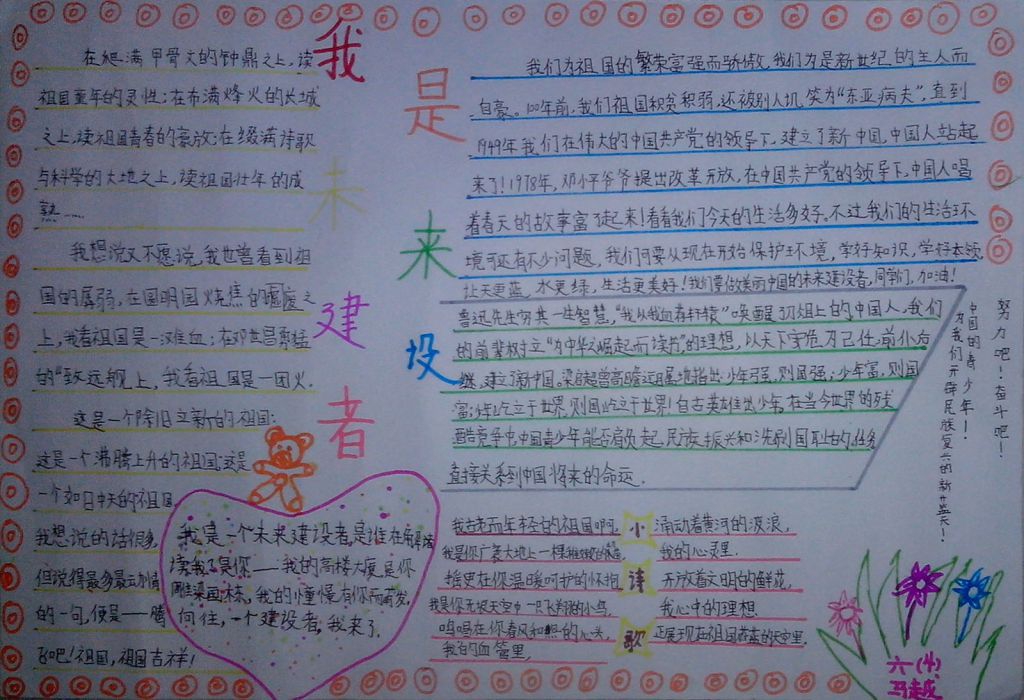 我是未来建设者
在爬满甲骨文的钟鼎之上，读
祖国童年的灵性；在布满烽火的长城
之上，读祖国青春的豪放；在缀满诗歌
与科学的大地之上，读祖国壮年的成
熟……
我想说又不愿说，我也曾看到祖
国的孱弱，在圆明园烧焦的废墟之
上，我看祖国是一滩血；在邓世昌勇猛
的"致远舰上，我看祖国是一团火。
这是一个除旧立新的祖国；
这是一个沸腾上升的祖国；这是
一个如日中天的祖国
我想说的话很多，
但说得最多最
的一句，便是——腾
飞吧！祖国，祖国吉祥！
我是一个未来建设者，是谁在
我是你——我的高楼大厦是你
雕梁画栋，我的憧憬有你而萌发，
向往，一个建设者，我来了.
我们为祖国的繁荣富强而骄傲，我们为是新世纪的主人而
自豪。100年前，我们祖国积贫积弱，还被别人讥笑为"东亚病夫"，直到
1949年我们在伟大的中国共产党的领导下，建立了新中国，中国人站起
来了！1978年，邓小平爷爷提出改革开放，在中国共产党的领导下，中国人唱
着春天的故事富了起来！看看我们今天的生活多好，不过我们的生活环
境可还有不少问题，我们可要从现在开始保护环境，学好知识，学好本领，
让天更蓝，水更绿，生活更美好！我们要做美丽中国的未来建设者，同学们，加油！
鲁迅先生穷其一生智慧，"我以我血荐轩辕"唤醒刀俎上的中国人，我们
的前辈树立"为中华之崛起而读书"的理想，以天下安危为己任，前仆后
继，建立了新中国，梁启超曾高瞻远瞩地指出：少年强，则国强；少年富，则国
富；少年屹立于世界，则国屹立于世界！自古英雄出少年，在当今世界的残
酷竞争中，中国青少年能否肩负起民族振兴和洗刷国耻的任务
直接关系到中国将来的命运.
努力吧！奋斗吧！
中国的青少年！
为我们开辟民族复兴的新蓝天！
小诗歌
我古老而年轻的祖国啊，
我是你广袤大地上一棵
摇曳在你温暖呵护的怀抱，
我是你无垠天空中一只飞翔的小鸟，
鸣唱在你春风和煦的心头，
我的血管里，
涌动着黄河的波浪，
我的心灵里.
开放着文明的鲜花，
我心中的理想
正展现在祖国蔚蓝的天空里.
六（4）